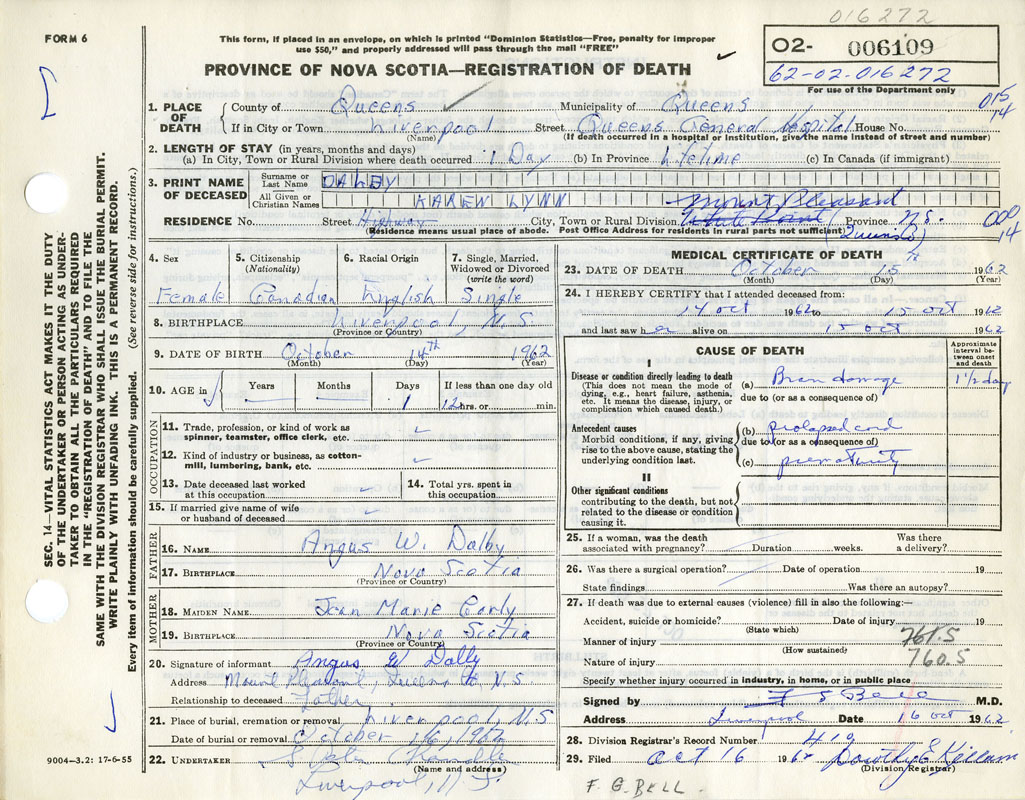 016272
FORM 6
This form, if placed in an envelope, on which is printed "Dominion Statistics—Free, penalty for improper
use $50," and properly addressed will pass through the mail "FREE"
O2- 006109
62-02-016272
For use of the Department only
PROVINCE OF NOVA SCOTIA—REGISTRATION OF DEATH
015
14
1. PLACE OF DEATH County of Queens Municipality of Queens
If in City or Town Liverpool Street Queens General Hospital House No.
(Name) (If death occurred in a hospital or institution, give the name instead of street and number)
2. LENGTH OF STAY (in years, months and days)
(a) In City, Town or Rural Division where death occurred 1 Day (b) In Province Lifetime (c) In Canada (if immigrant)
3. PRINT NAME OF DECEASED Surname or Last Name DALBY
All Given or Christian Names KAREN LYNN
Mount Pleasant
RESIDENCE No. Street Highway City, Town or Rural Division White Point (Queens Co) Province N.S.
000
14
(Residence means usual place of abode. Post Office Address for residents in rural parts not sufficient)
4. Sex 5. Citizenship (Nationality) 6. Racial Origin 7. Single, Married, Widowed or Divorced (write the word)
Female Canadian English Single
8. BIRTHPLACE Liverpool, N.S
(Province or Country)
9. DATE OF BIRTH October 14th 1962
(Month) (Day) (Year)
10. AGE in Years Months Days If less than one day old
1 12 hrs. or min.
OCCUPATION
11. Trade, profession, or kind of work as spinner, teamster, office clerk, etc.
12. Kind of industry or business, as cotton-mill, lumbering, bank, etc.
13. Date deceased last worked at this occupation 14. Total yrs. spent in this occupation
15. If married give name of wife or husband of deceased
FATHER
16. NAME Angus W. Dalby
17. BIRTHPLACE Nova Scotia
(Province or Country)
MOTHER
18. MAIDEN NAME Jean Marie
19. BIRTHPLACE Nova Scotia
(Province or Country)
20. Signature of informant Angus W Dalby
Address Mount Pleasant, Queens Co N.S
Relationship to deceased Father
21. Place of burial, cremation or removal Liverpool, N.S
Date of burial or removal October 16, 1962
22. UNDERTAKER
(Name and address)
Liverpool, N.S
MEDICAL CERTIFICATE OF DEATH
23. DATE OF DEATH October 15th 1962
(Month) (Day) (Year)
24. I HEREBY CERTIFY that I attended deceased from:
14 oct 1962 to 15 oct 1962
and last saw her alive on 15 oct 1962
CAUSE OF DEATH
Approximate interval between onset and death
I
Disease or condition directly leading to death
(This does not mean the mode of dying, e.g., heart failure, asthenia, etc. It means the disease, injury, or complication which caused death.)
(a) Brain damage 1½ day
due to (or as a consequence of)
Antecedent causes
Morbid conditions, if any, giving rise to the above cause, stating the underlying condition last.
(b) prolapsed cord
due to (or as a consequence of)
(c) prematurity
II
Other significant conditions
contributing to the death, but not related to the disease or condition causing it.
25. If a woman, was the death associated with pregnancy? Duration weeks. Was there a delivery?
26. Was there a surgical operation? Date of operation 19
State findings Was there an autopsy?
27. If death was due to external causes (violence) fill in also the following:—
Accident, suicide or homicide? Date of injury 19
(State which)
Manner of injury 761.5
(How sustained)
Nature of injury 760.5
Specify whether injury occurred in industry, in home, or in public place
Signed by F G Bell M.D.
Address Liverpool Date 16 oct 1962
28. Division Registrar's Record Number 410
29. Filed Oct 16 1962 Dorothy E Killam
(Division Registrar)
F. G. BELL.
SEC. 14—VITAL STATISTICS ACT MAKES IT THE DUTY
OF THE UNDERTAKER OR PERSON ACTING AS UNDER-
TAKER TO OBTAIN ALL THE PARTICULARS REQUIRED
IN THE "REGISTRATION OF DEATH" AND TO FILE THE
SAME WITH THE DIVISION REGISTRAR WHO SHALL ISSUE THE BURIAL PERMIT.
WRITE PLAINLY WITH UNFADING INK. THIS IS A PERMANENT RECORD.
Every item of Information should be carefully supplied. (See reverse side for instructions.)
9004—3.2: 17-6-55